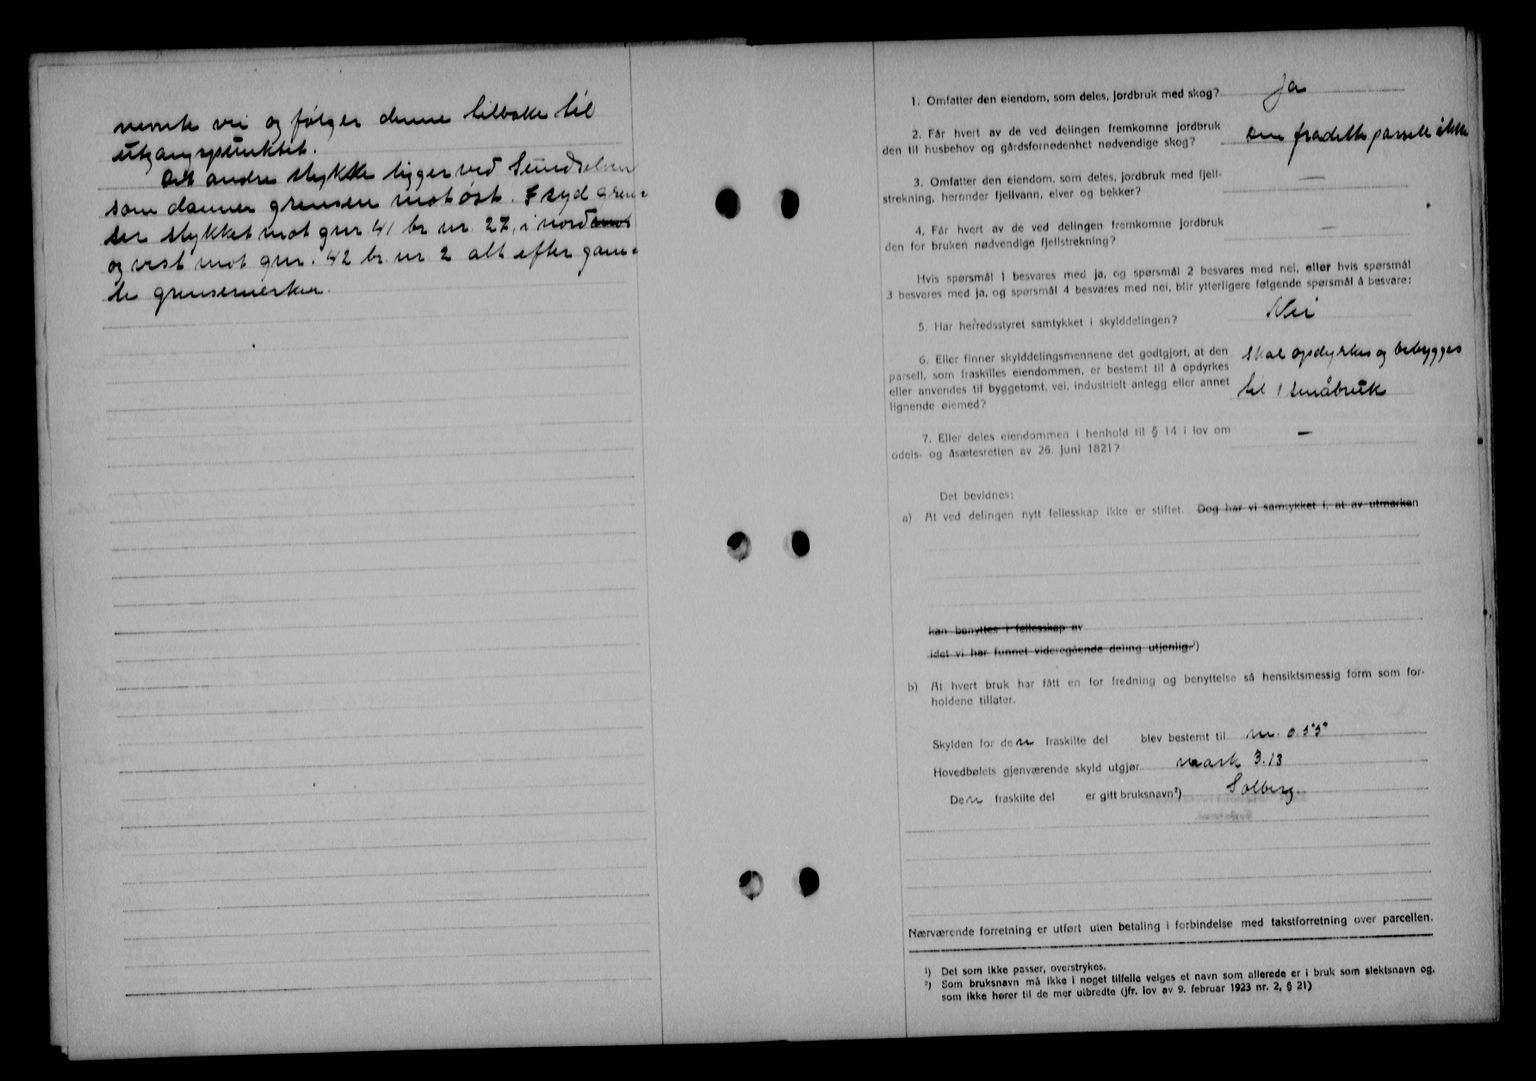 nevnte vei og følger denne tilbake til
utgangspunktet.
Det andre stykke ligger ved Sundselven
som danner grensen mot øst. I syd gren-
ser stykket mot gnr 41 br nr. 27, i nord mot
og vest mot gnr. 42 br nr 2 alt efter gam-
le grensemerker.
1. Omfatter den eiendom, som deles, jordbruk med skog? Ja
2. Får hvert av de ved delingen fremkomne jordbruk
den til husbehov og gårdsfornødenhet nødvendige skog? den fradelte parsell ikke
3. Omfatter den eiendom, som deles, jordbruk med fjell-
strekning, herunder fjellvann, elver og bekker? —
4. Får hvert av de ved delingen fremkomne jordbruk
den for bruken nødvendige fjellstrekning? —
Hvis spørsmål 1 besvares med ja, og spørsmål 2 besvares med nei, eller hvis spørsmål
3 besvares med ja, og spørsmål 4 besvares med nei, blir ytterligere følgende spørsmål å besvare:
5. Har herredsstyret samtykket i skylddelingen? Nei
6. Eller finner skylddelingsmennene det godtgjort, at den
parsell, som fraskilles eiendommen, er bestemt til å opdyrkes
eller anvendes til byggetomt, vei, industrielt anlegg eller annet
lignende øiemed? skal opdyrkes og bebygges
til 1 småbruk
7. Eller deles eiendommen i henhold til § 14 i lov om
odels- og åsætesretten av 26. juni 1821? —
Det bevidnes:
a) At ved delingen nytt fellesskap ikke er stiftet. Dog har vi samtykket i, at av utmarken
kan benyttes i fellesskap av
idet vi har funnet videregående deling utjenlig.¹)
b) At hvert bruk har fått en for fredning og benyttelse så hensiktsmessig form som for-
holdene tillater.
Skylden for den fraskilte del blev bestemt til m. 0.55
Hovedbølets gjenværende skyld utgjør mark 3.13
Den fraskilte del er gitt bruksnavn²) Solberg
Nærværende forretning er utført uten betaling i forbindelse med takstforretning over parcellen.
¹) Det som ikke passer, overstrykes.
²) Som bruksnavn må ikke i noget tilfelle velges et navn som allerede er i bruk som slektsnavn og,
som ikke hører til de mer utbredte (jfr. lov av 9. februar 1923 nr. 2, § 21)